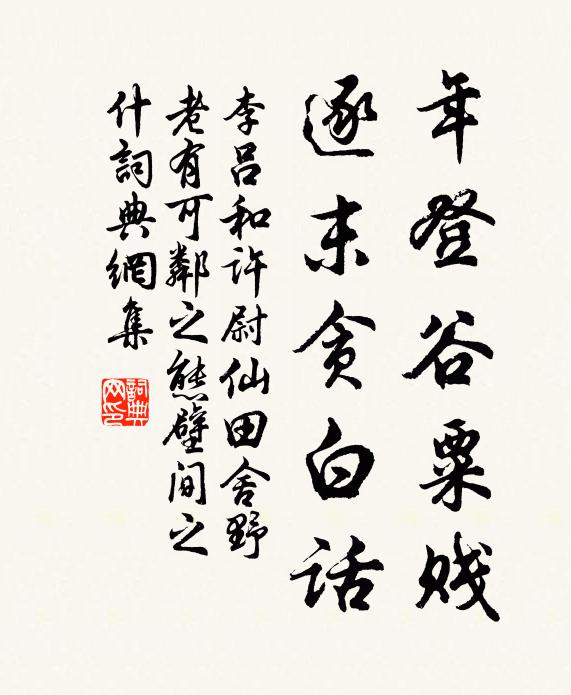 年登谷粟贱
逐末贪白话
李吕和许尉仙田舍野
老有可鄰之態壁间之
什詞典網集
詞典网印